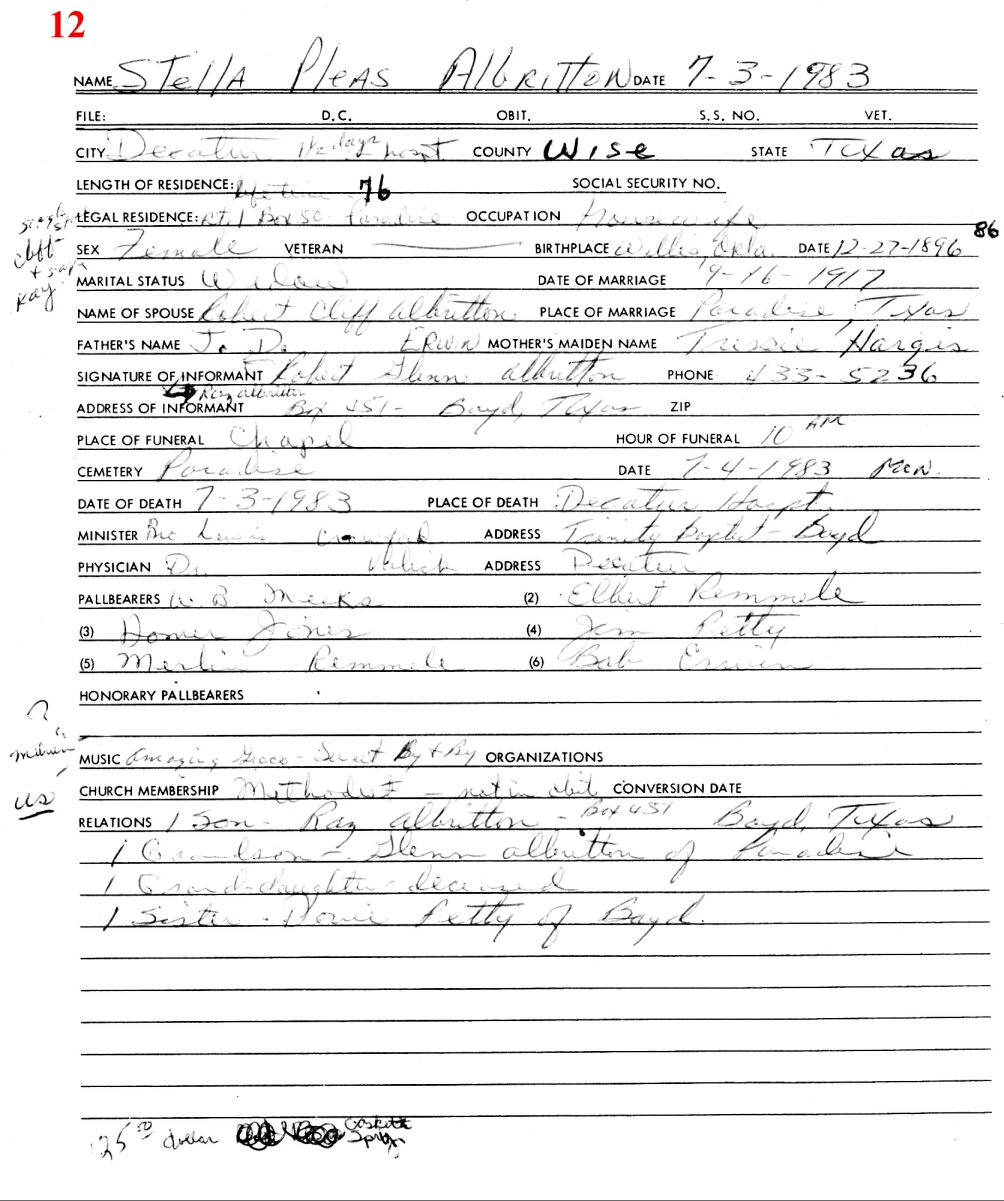 12
NAME Stella Pleas Albritton DATE 7-3-1983
FILE: D.C. OBIT. S.S. NO. VET.
CITY Decatur 1½ days hospt COUNTY Wise STATE Texas
LENGTH OF RESIDENCE: life time 76 SOCIAL SECURITY NO.
LEGAL RESIDENCE: Rt. 1 Box 50 Paradise OCCUPATION housewife
86
SEX Female VETERAN BIRTHPLACE Willis, Okla. DATE 12-27-1896
Cliff
Ray
MARITAL STATUS Widow DATE OF MARRIAGE 9-16-1917
NAME OF SPOUSE Robert Cliff Albritton PLACE OF MARRIAGE Paradise, Texas
FATHER'S NAME J. D. ERWIN MOTHER'S MAIDEN NAME Tressie Hargis
SIGNATURE OF INFORMANT Robert Glenn Albritton PHONE 433-5236
Ray Albritton
ADDRESS OF INFORMANT Box 451- Boyd, Texas ZIP
PLACE OF FUNERAL Chapel HOUR OF FUNERAL 10 AM
CEMETERY Paradise DATE 7-4-1983 Mon.
DATE OF DEATH 7-3-1983 PLACE OF DEATH Decatur Hospt
MINISTER Bro Lewis Crawford ADDRESS Trinity Baptist - Boyd
PHYSICIAN Dr. ADDRESS Decatur
PALLBEARERS W. B Meeks (2) Elbert Remmele
(3) Homer Jones (4) Jim Petty
(5) Merlin Remmele (6) Bob Erwin
HONORARY PALLBEARERS
?
MUSIC Amazing Grace - Sweet By & By ORGANIZATIONS
CHURCH MEMBERSHIP Methodist - not in obit CONVERSION DATE
us
RELATIONS 1 Son - Ray Albritton - Box 451 Boyd, Texas
1 Grandson - Glenn Albritton of Paradise
1 Grand-daughter - deceased
1 Sister - Petty of Boyd.
125.00 dollar Caskett Spray